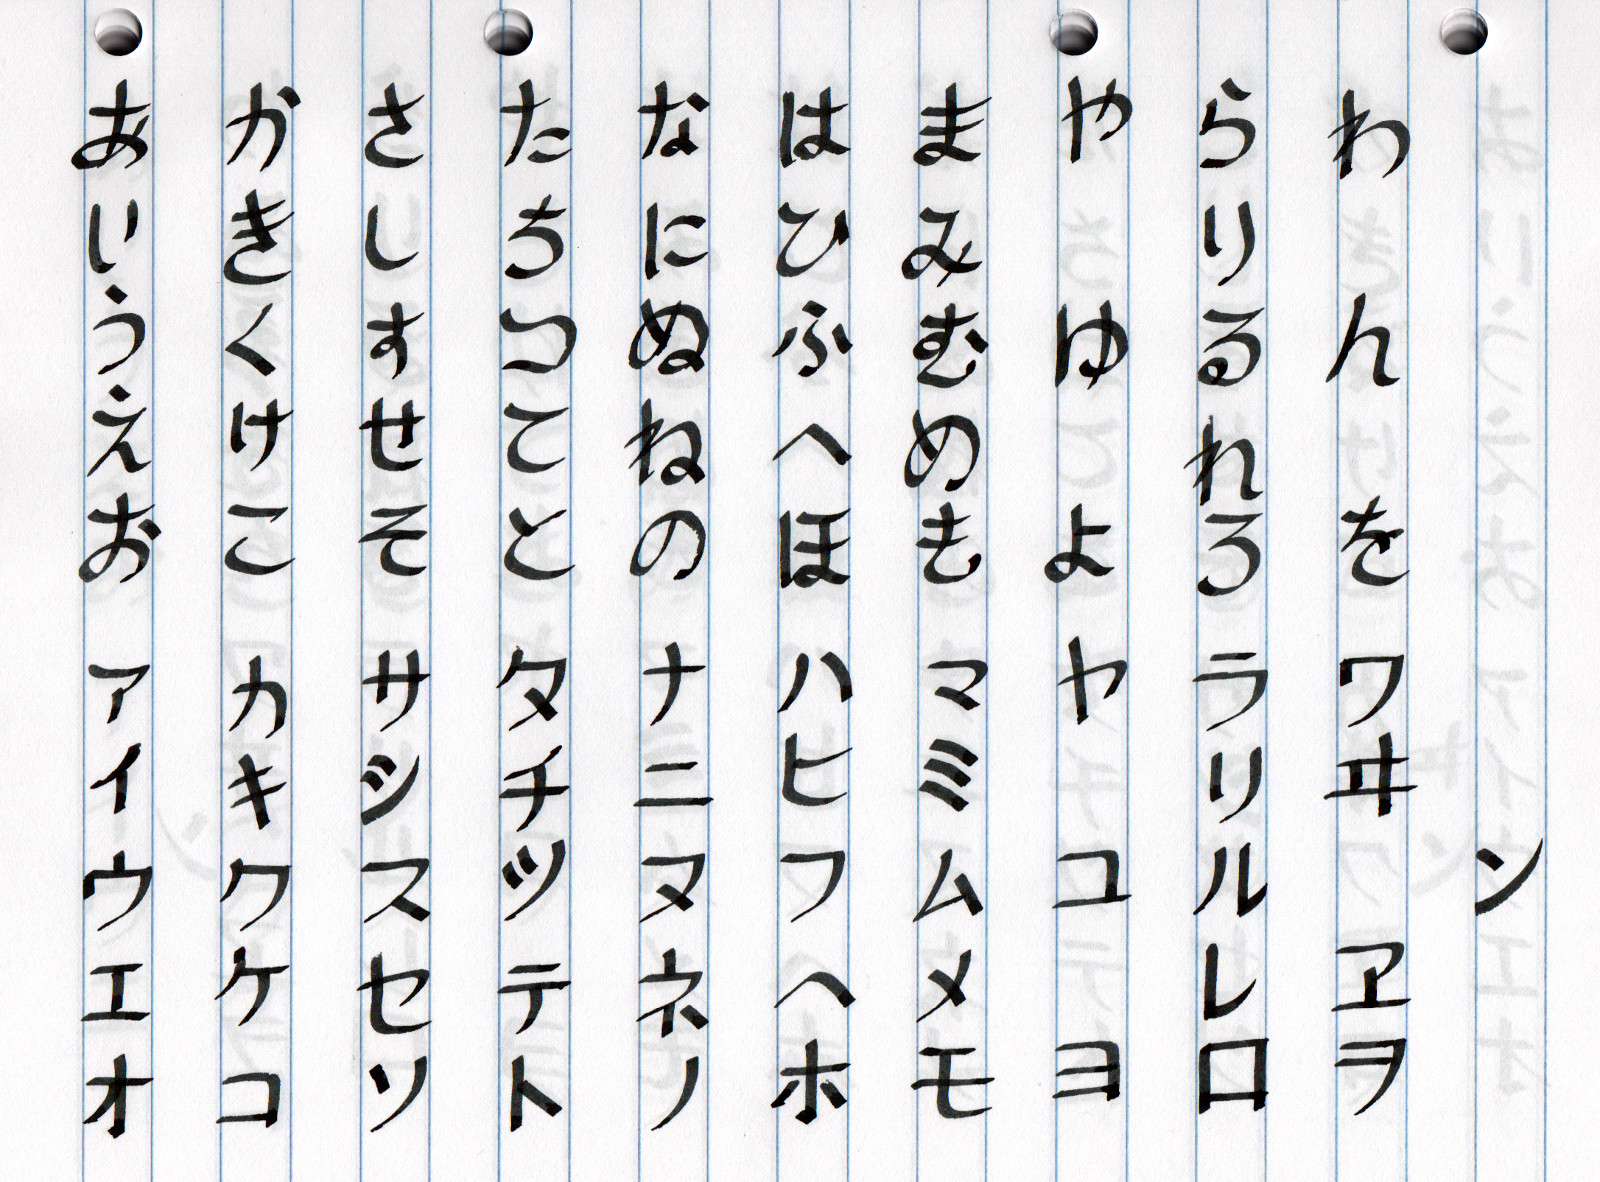 あいうえおアイウエオ
かきくけこカキクケコ
さしすせそサシスセソ
たちつてとタチツテト
なにぬねのナニヌネノ
はひふへほハヒフヘホ
まみむめもマミムメモ
やゆよヤユヨ
らりるれろラリルレロ
わんをワヰヱヲ
ン